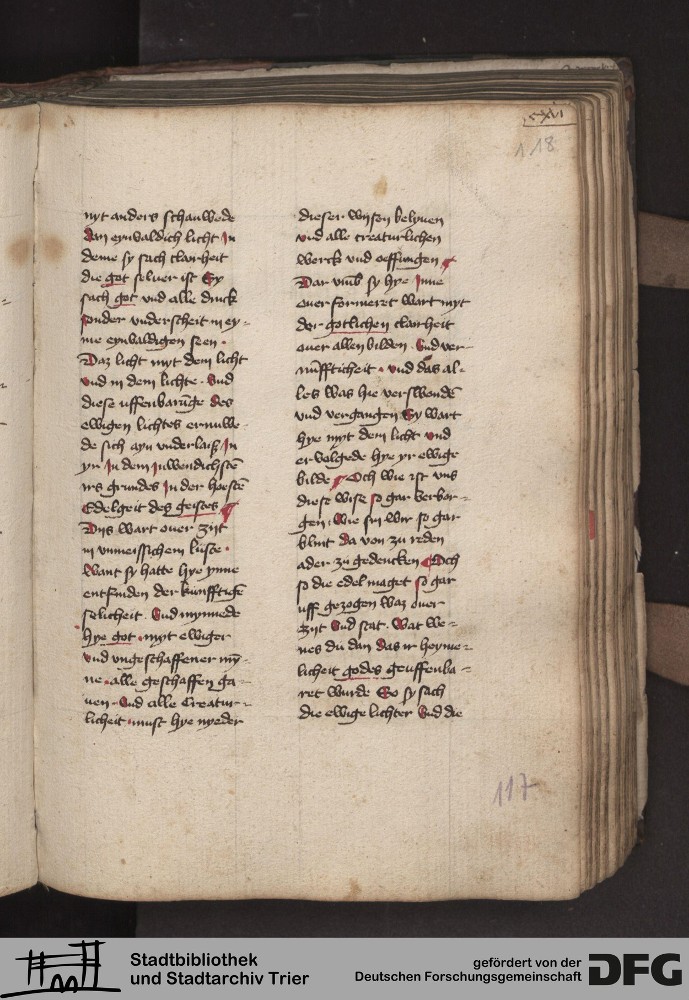 cxvi
118
nyt anders schauwede
dan eynvaldich licht In
deme sy sach clairheit
die got seluer ist Sy
sach got vnd alle dinck
sonder vnderscheit in ey-
me eynvaldigen seen
Daz licht myt dem licht
vnd in dem lichte Vnd
diese vffenbarūge des
ewigen lichtes ernuwe-
de sich ayn vnderlaiß In
yr In dem Inwendichstē
irs grundes In der hoestē
Edelgeit des geistes
Dyß wart ouer zijt
in vnmeissichem luste
Want sy hatte hye ynne
entfinden der kunfftigē
selicheit Vnd mynnede
hye got myt ewiger
vnd vngeschaffener my-
ne alle geschaffen ga-
uen Vnd alle Creatur-
licheit must hye nyeder
dieser wysen belyuen
vnd alle creaturlichen
werck vnd oeffungen
Dar vmb sy hye Inne
ouerformeret wart myt
der gotlichen clairheit
ouer allen bilden Vnd ver-
nūfftcheit vnd das al-
les was hie verswendē
vnd vergangen Sy wart
hye myt dem licht vnd
ervolgede hye yr ewige
bilde Och wie ist vns
diese wise so gar verbor-
gen Wie sin wir so gar
blint da von zu reden
ader zu gedencken Och
so die edel maget so gar
vff gezogen waz ouer
zijt Vnd stat Wat we-
nes du dan das ir heyme-
licheit godes geuffenba-
ret wurde So sy sach
die ewige lichter Vnd die
117
Stadtbibliothek
und Stadtarchiv Trier
gefördert von der
Deutschen Forschungsgemeinschaft
DFG